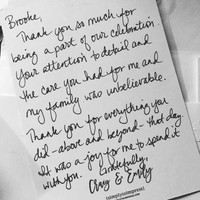 Brooke,
Thank you so much for
being a part of our celebration.
Your attention to detail and
the care you had for me and
my family was unbelievable.
Thank you for everything you
did - above and beyond - that day.
It was a joy for me to spend it
with you.
Gratefully,
Craig & Emily